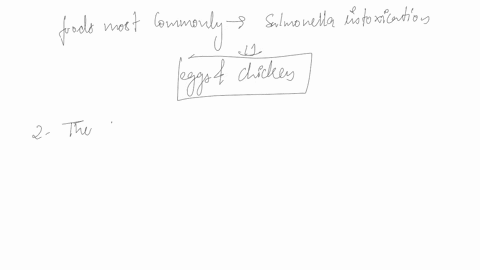 foods most commonly → Salmonella intoxication
eggs & chicken
2- The